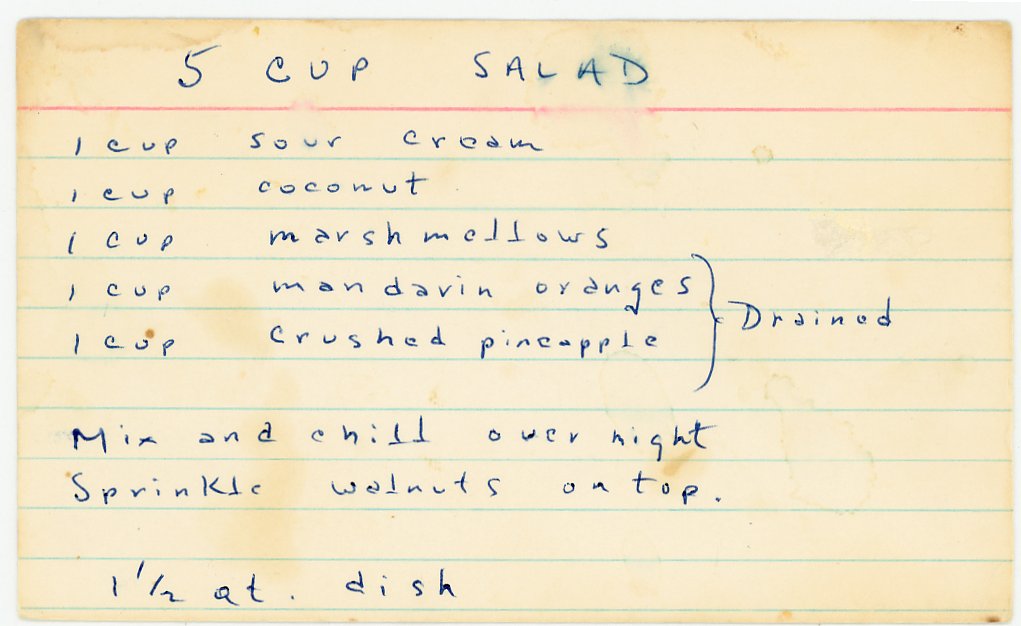 5 CUP SALAD
1 cup sour cream
1 cup coconut
1 cup marshmellows
1 cup mandarin oranges
1 cup crushed pineapple } Drained
Mix and chill over night
Sprinkle walnuts on top.
1 1/2 qt. dish